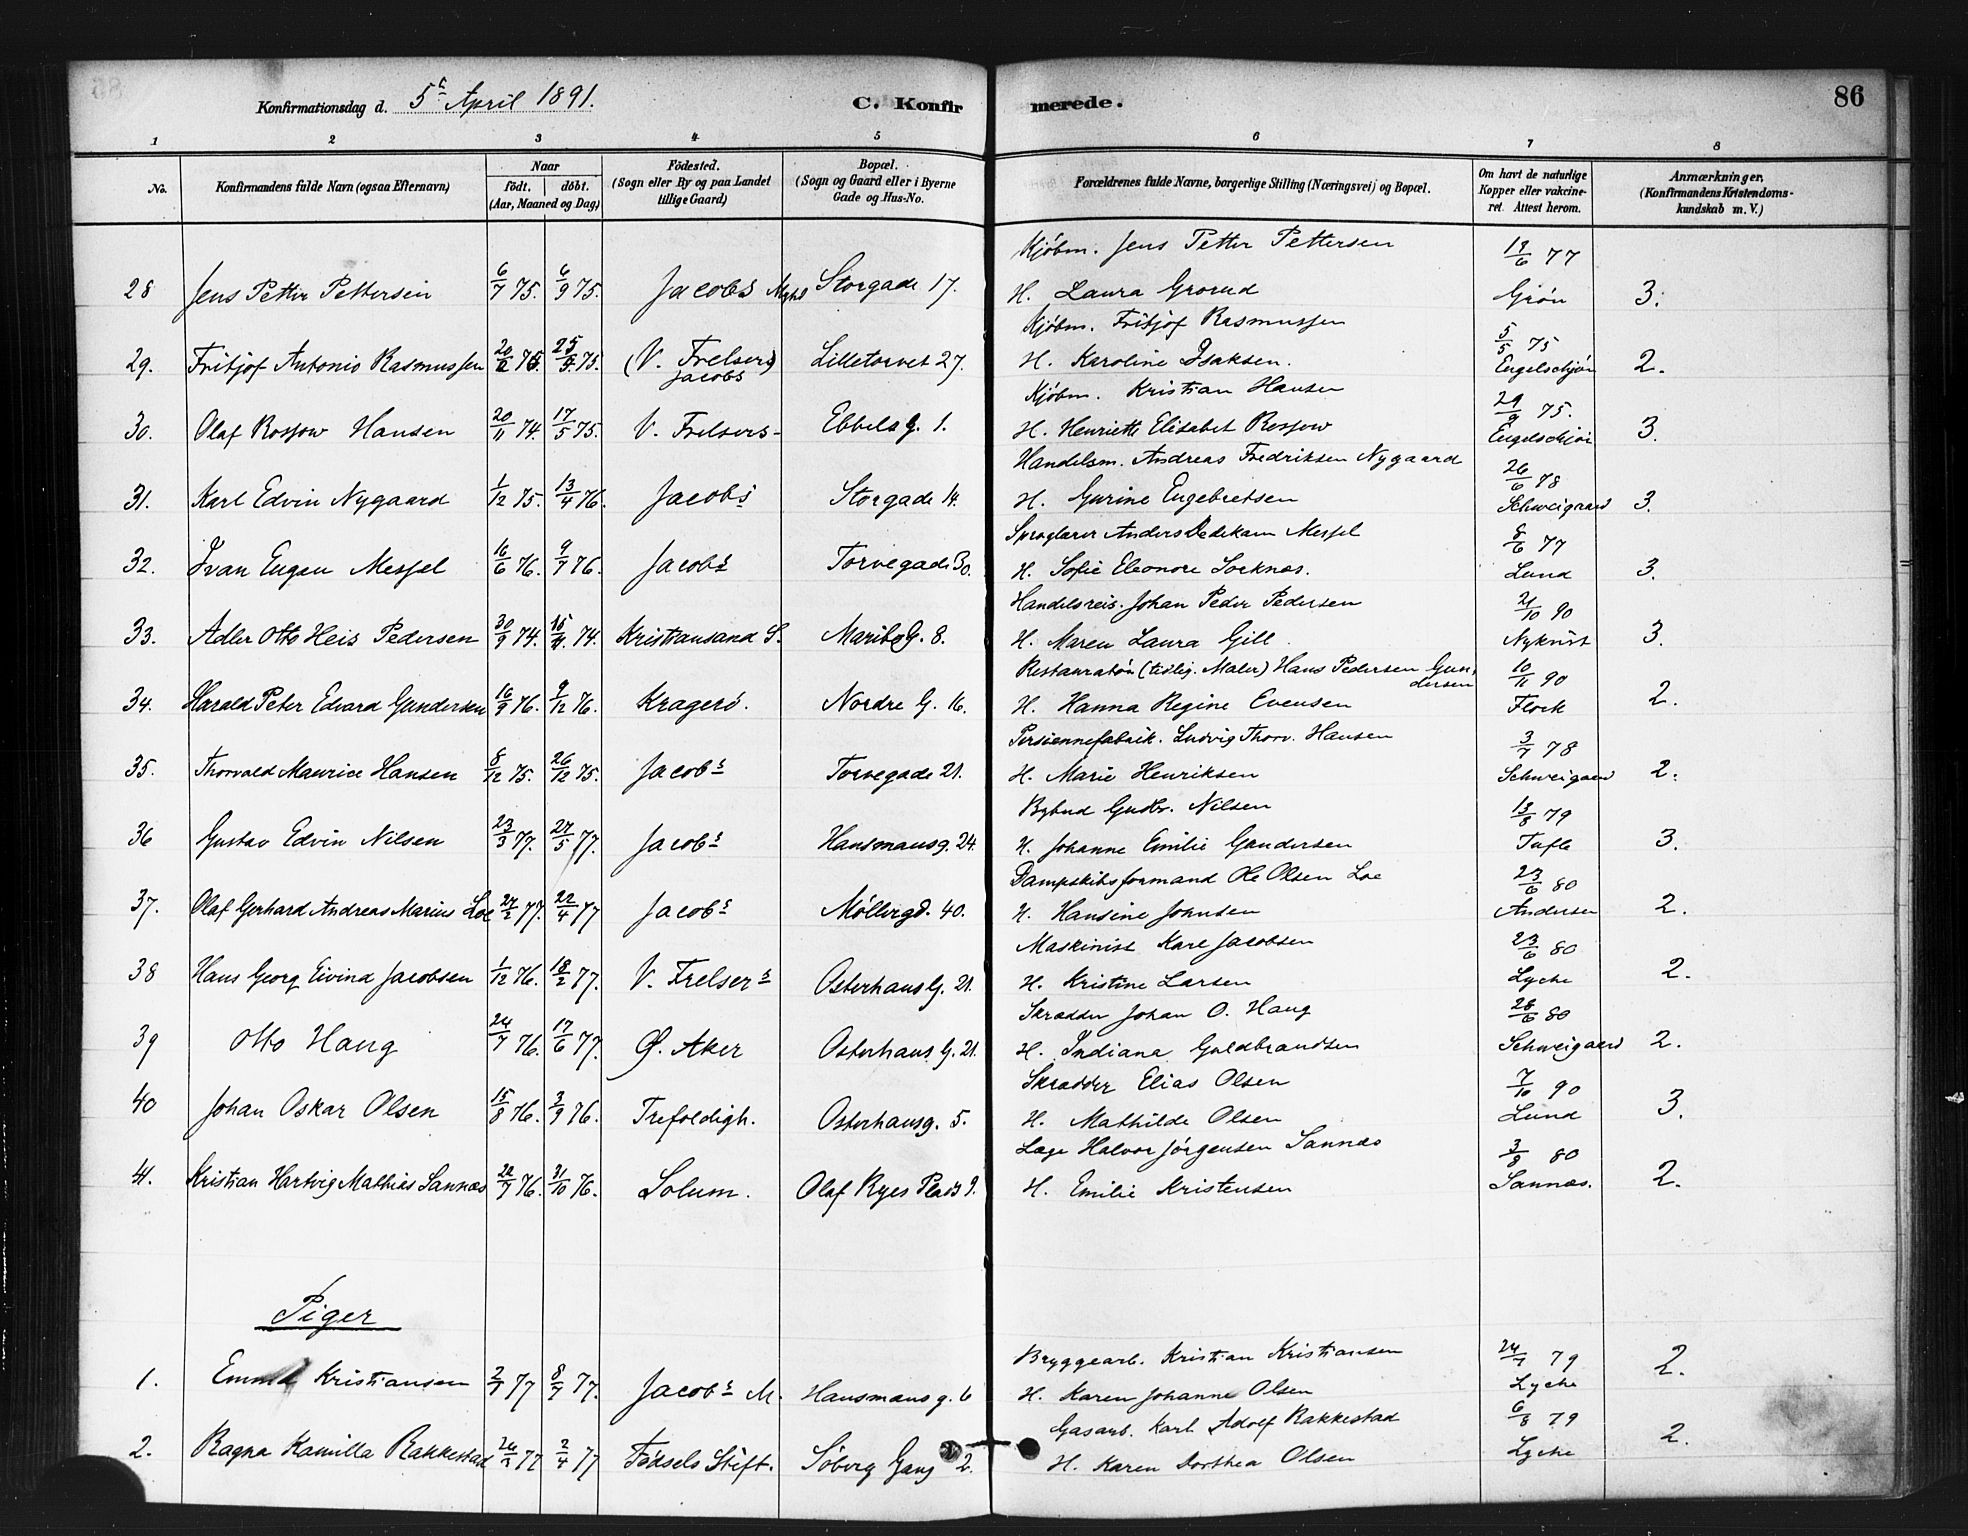 Konfirmationsdag d. 5te April 1891. C. Konfir merede. 86
1 2 3 4 5 6 7 8
No. Konfirmandens fulde Navn (ogsaa Efternavn) Naar födt. döbt. (Aar, Maaned og Dag) Födested. (Sogn eller By og paa Landet tillige Gaard) Bopæl. (Sogn og Gaard eller i Byerne Gade og Hus-No. Forældrenes fulde Navne, borgerlige Stilling (Næringsvei) og Bopæl. Om havt de naturlige Kopper eller vakcineret. Attest herom. Anmærkninger, (Konfirmandens Kristendomskundskab m. V.)
Kjöbm. Jens Petter Pettersen 19/6 77
28 Jens Petter Pettersen 6/7 75. 6/9 75. Jacobs Storgade 17. H. Laura Grorud Grön 3.
Kjöbm. Fritjof Rasmussen 5/5 75
29. Fritjof Antonio Rasmussen 75. (V. Frelsers) Jacobs Lilletorvet 27. H. Karoline Isaksen. Engelschjön 2.
Kjöbm. Kristian Hansen 29/9 75.
30. Olaf Rossow Hansen 20/11 74. 17/5 75. V. Frelsers Ebbels G. 1. H. Henriette Elisabet Rossow Engelschjön 3.
Handelsm. Andreas Fredriksen Nygaard 26/6 78
31. Karl Edvin Nygaard 1/12 75. 13/4 76. Jacobs Storgade 14. H. Gurine Engebretsen Schweigaard 3.
Sproglærer Anders Messel 8/6 77
32. Ivan Eugen Messel 16/6 76. 9/7 76. Jacobs Torvegade 30. H. Sofie Eleonore Lund 3.
Handelsreis. Johan Peder Pedersen 21/10 90
33. Adler Otto Heis Pedersen 30/9 74. 74. Kristiansand S. Maribo G. 8. H. Maren Laura Gill Nykvist 3.
Restauratör (tidlig. Maler) Hans Pedersen Gundersen 10/11 90
34. Harald Peter Edvard Gundersen 16/9 76. 9/12 76. Kragerö. Nordre G. 16. H. Hanna Regine Evensen Flock 2.
Persiennefabrik. Ludvig Thorv. Hansen 3/7 78
35. Thorvald Maurice Hansen 8/12 75. 26/12 75. Jacobs Torvegade 21. H. Marie Henriksen Schweigaard 2.
Bybud Gudbr. Nilsen 13/8 79
36 Gustav Edvin Nilsen 23/3 77. 27/5 77. Jacobs Hausmansg. 24. H. Johanne Emilie Gundersen Tufte 3.
Dampskibsformand Ole Olsen Loe 23/6 80
37. Olaf Gerhard Andreas Marius Loe 27/2 77. 22/4 77 Jacobs Möllergd. 40. H. Hansine Johnsen Andersen 2.
Maskinist Karl Jacobsen 23/6 80
38 Hans Georg Eivind Jacobsen 1/12 76. 18/2 77. V. Frelsers Osterhaus G. 21. H. Kristine Larsen Lyche 2.
Skrædder Johan O. Haug 28/6 80
39 Otto Haug 24/7 76. 17/6 77. Ø. Aker Osterhaus G. 21. H. Indiana Guldbrandsen Schweigaard 2.
Skrædder Elias Olsen 7/10 90
40 Johan Oskar Olsen 15/8 76. 3/9 76. Trefoldigh. Osterhausg. 5. H. Mathilde Olsen Lund 3.
Læge Halvor Jörgensen Sannæs 3/8 80
41. Kristian Hartvig Mathias Sannæs 22/7 76. 31/10 76. Solum. Olaf Ryes Plads 9. H. Emilie Kristensen Sannæs. 2.
Piger
Bryggearb. Kristian Kristiansen 24/7 79
1. Kristiansen 2/7 77 8/7 77. Jacobs M. Hausmansg. 6 H. Karen Johanne Olsen Lyche 2.
Gasarb. Karl Adolf Rakkestad 6/8 79
2. Ragna Kamilla Rakkestad 77 2/4 77 Födsels Stift. Söberg Gang 2. H. Karen Dorthea Olsen Lyche 2.